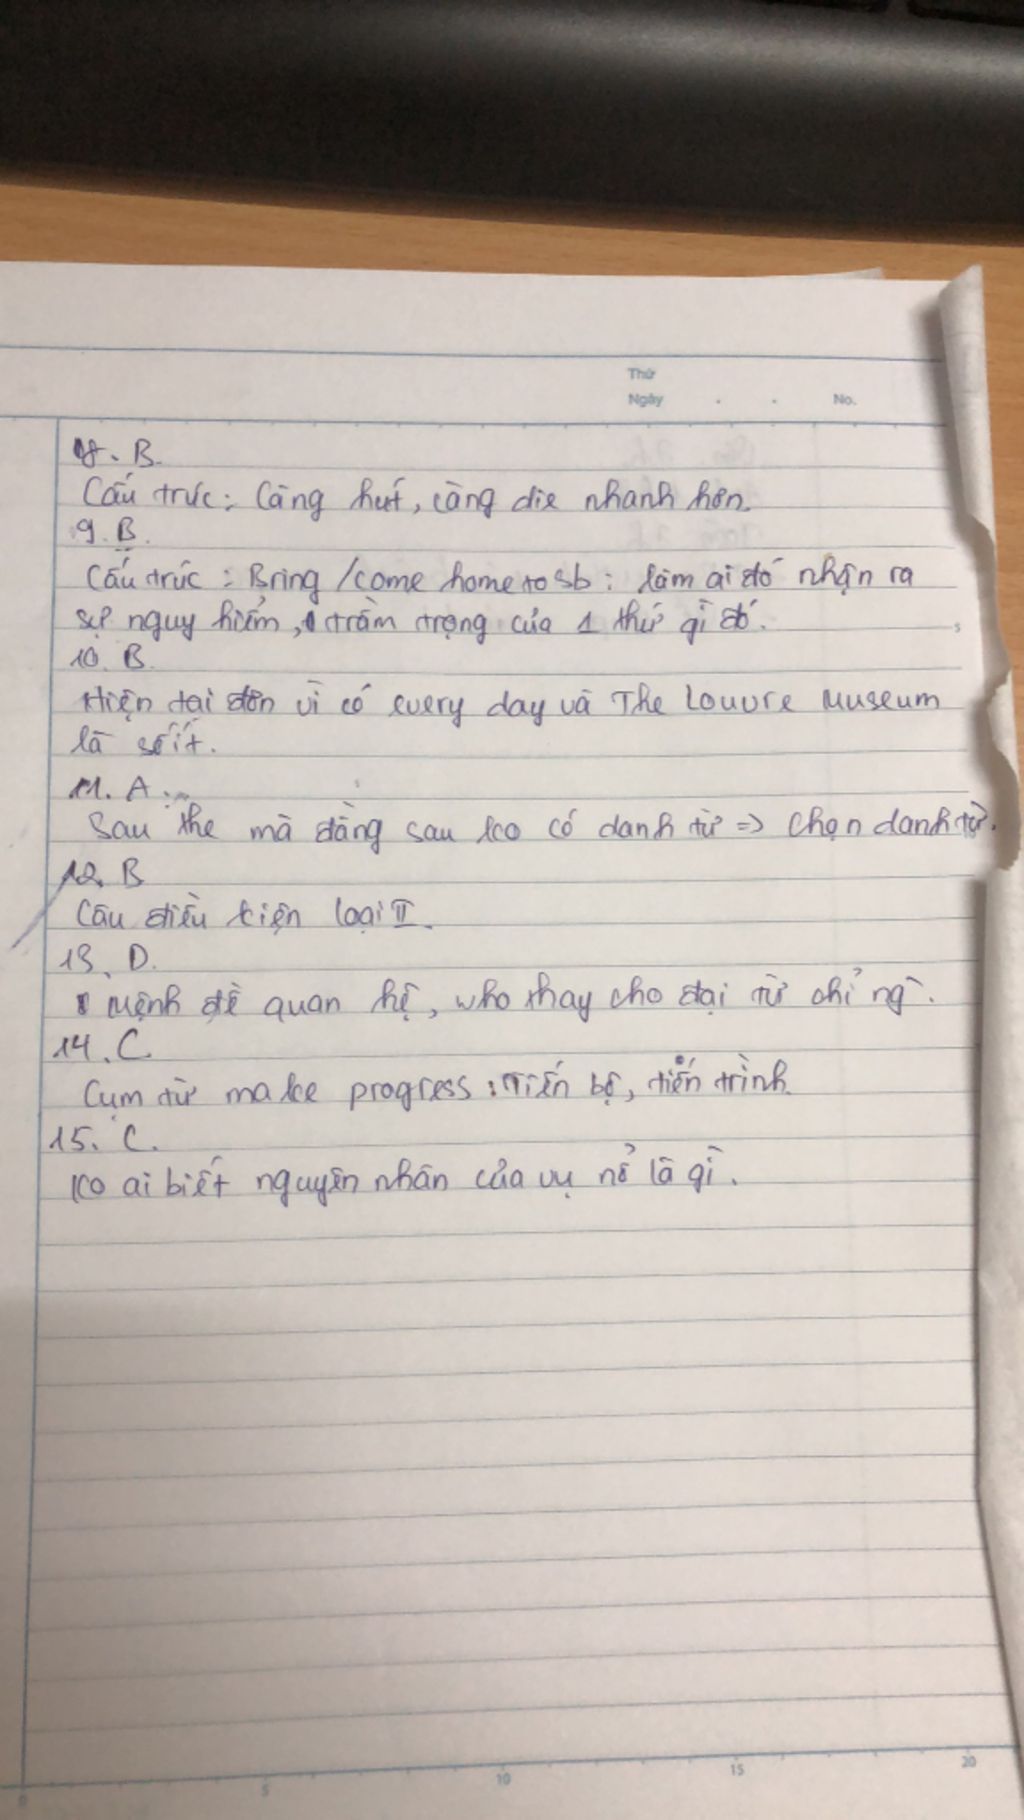 Thứ
Ngày . . No.
8. B.
Cấu trúc: Càng hút, càng die nhanh hơn.
9. B.
Cấu trúc: Bring/come home to sb: làm ai đó nhận ra
sự nguy hiểm, trầm trọng của 1 thứ gì đó.
10. B.
Hiện tại đơn vì có every day và The Louvre Museum
là số ít.
11. A.
Sau the mà đằng sau ko có danh từ => Chọn danh từ.
12. B
Câu điều kiện loại II.
13. D.
Mệnh đề quan hệ, who thay cho đại từ chỉ ng`.
14. C
Cụm từ make progress: Tiến bộ, tiến trình.
15. C.
Ko ai biết nguyên nhân của vụ nổ là gì.
0 5 10 15 20